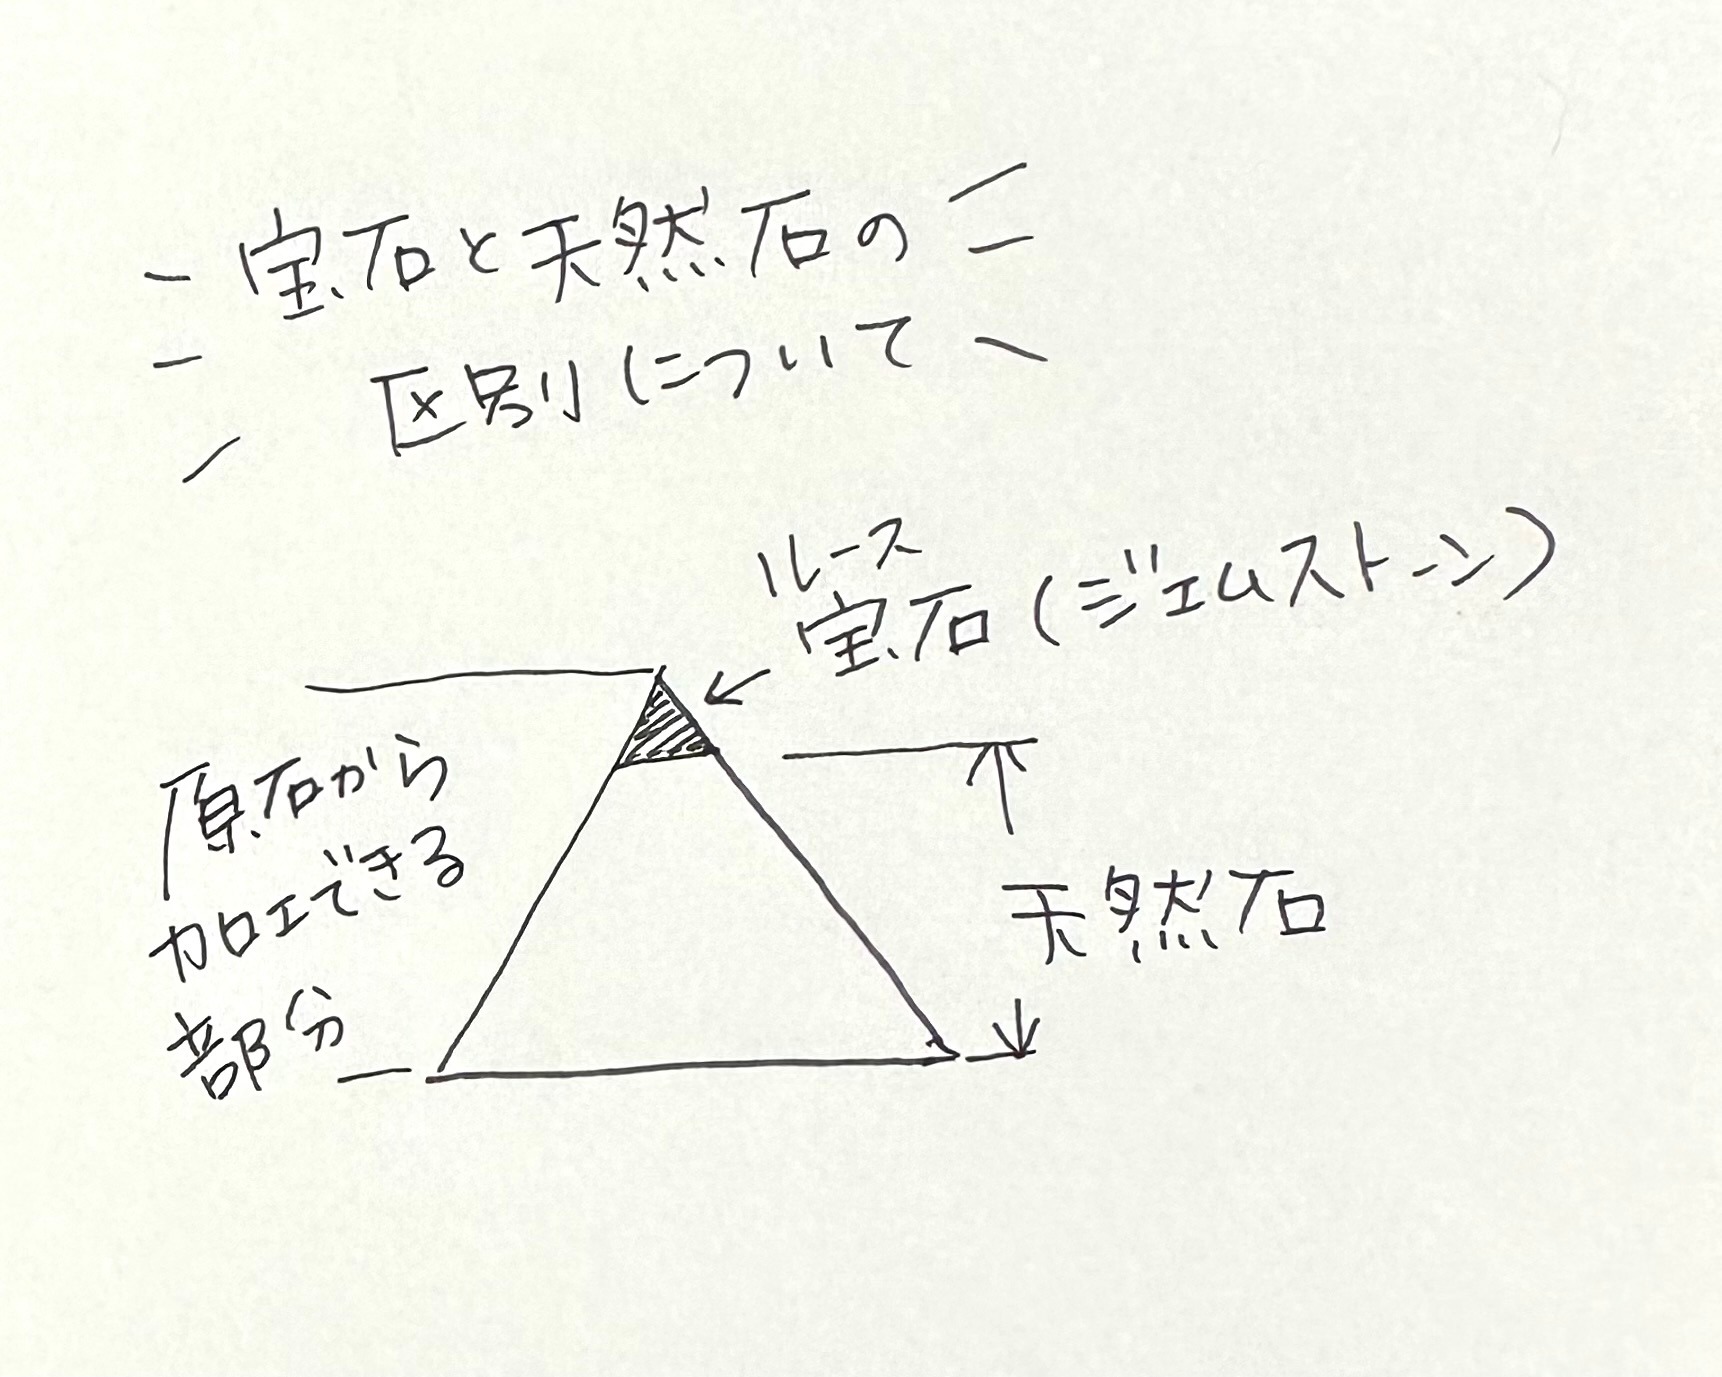 宝石と天然石の
区別について
ルース
宝石(ジェムストーン)
原石から
加工できる
部分
天然石